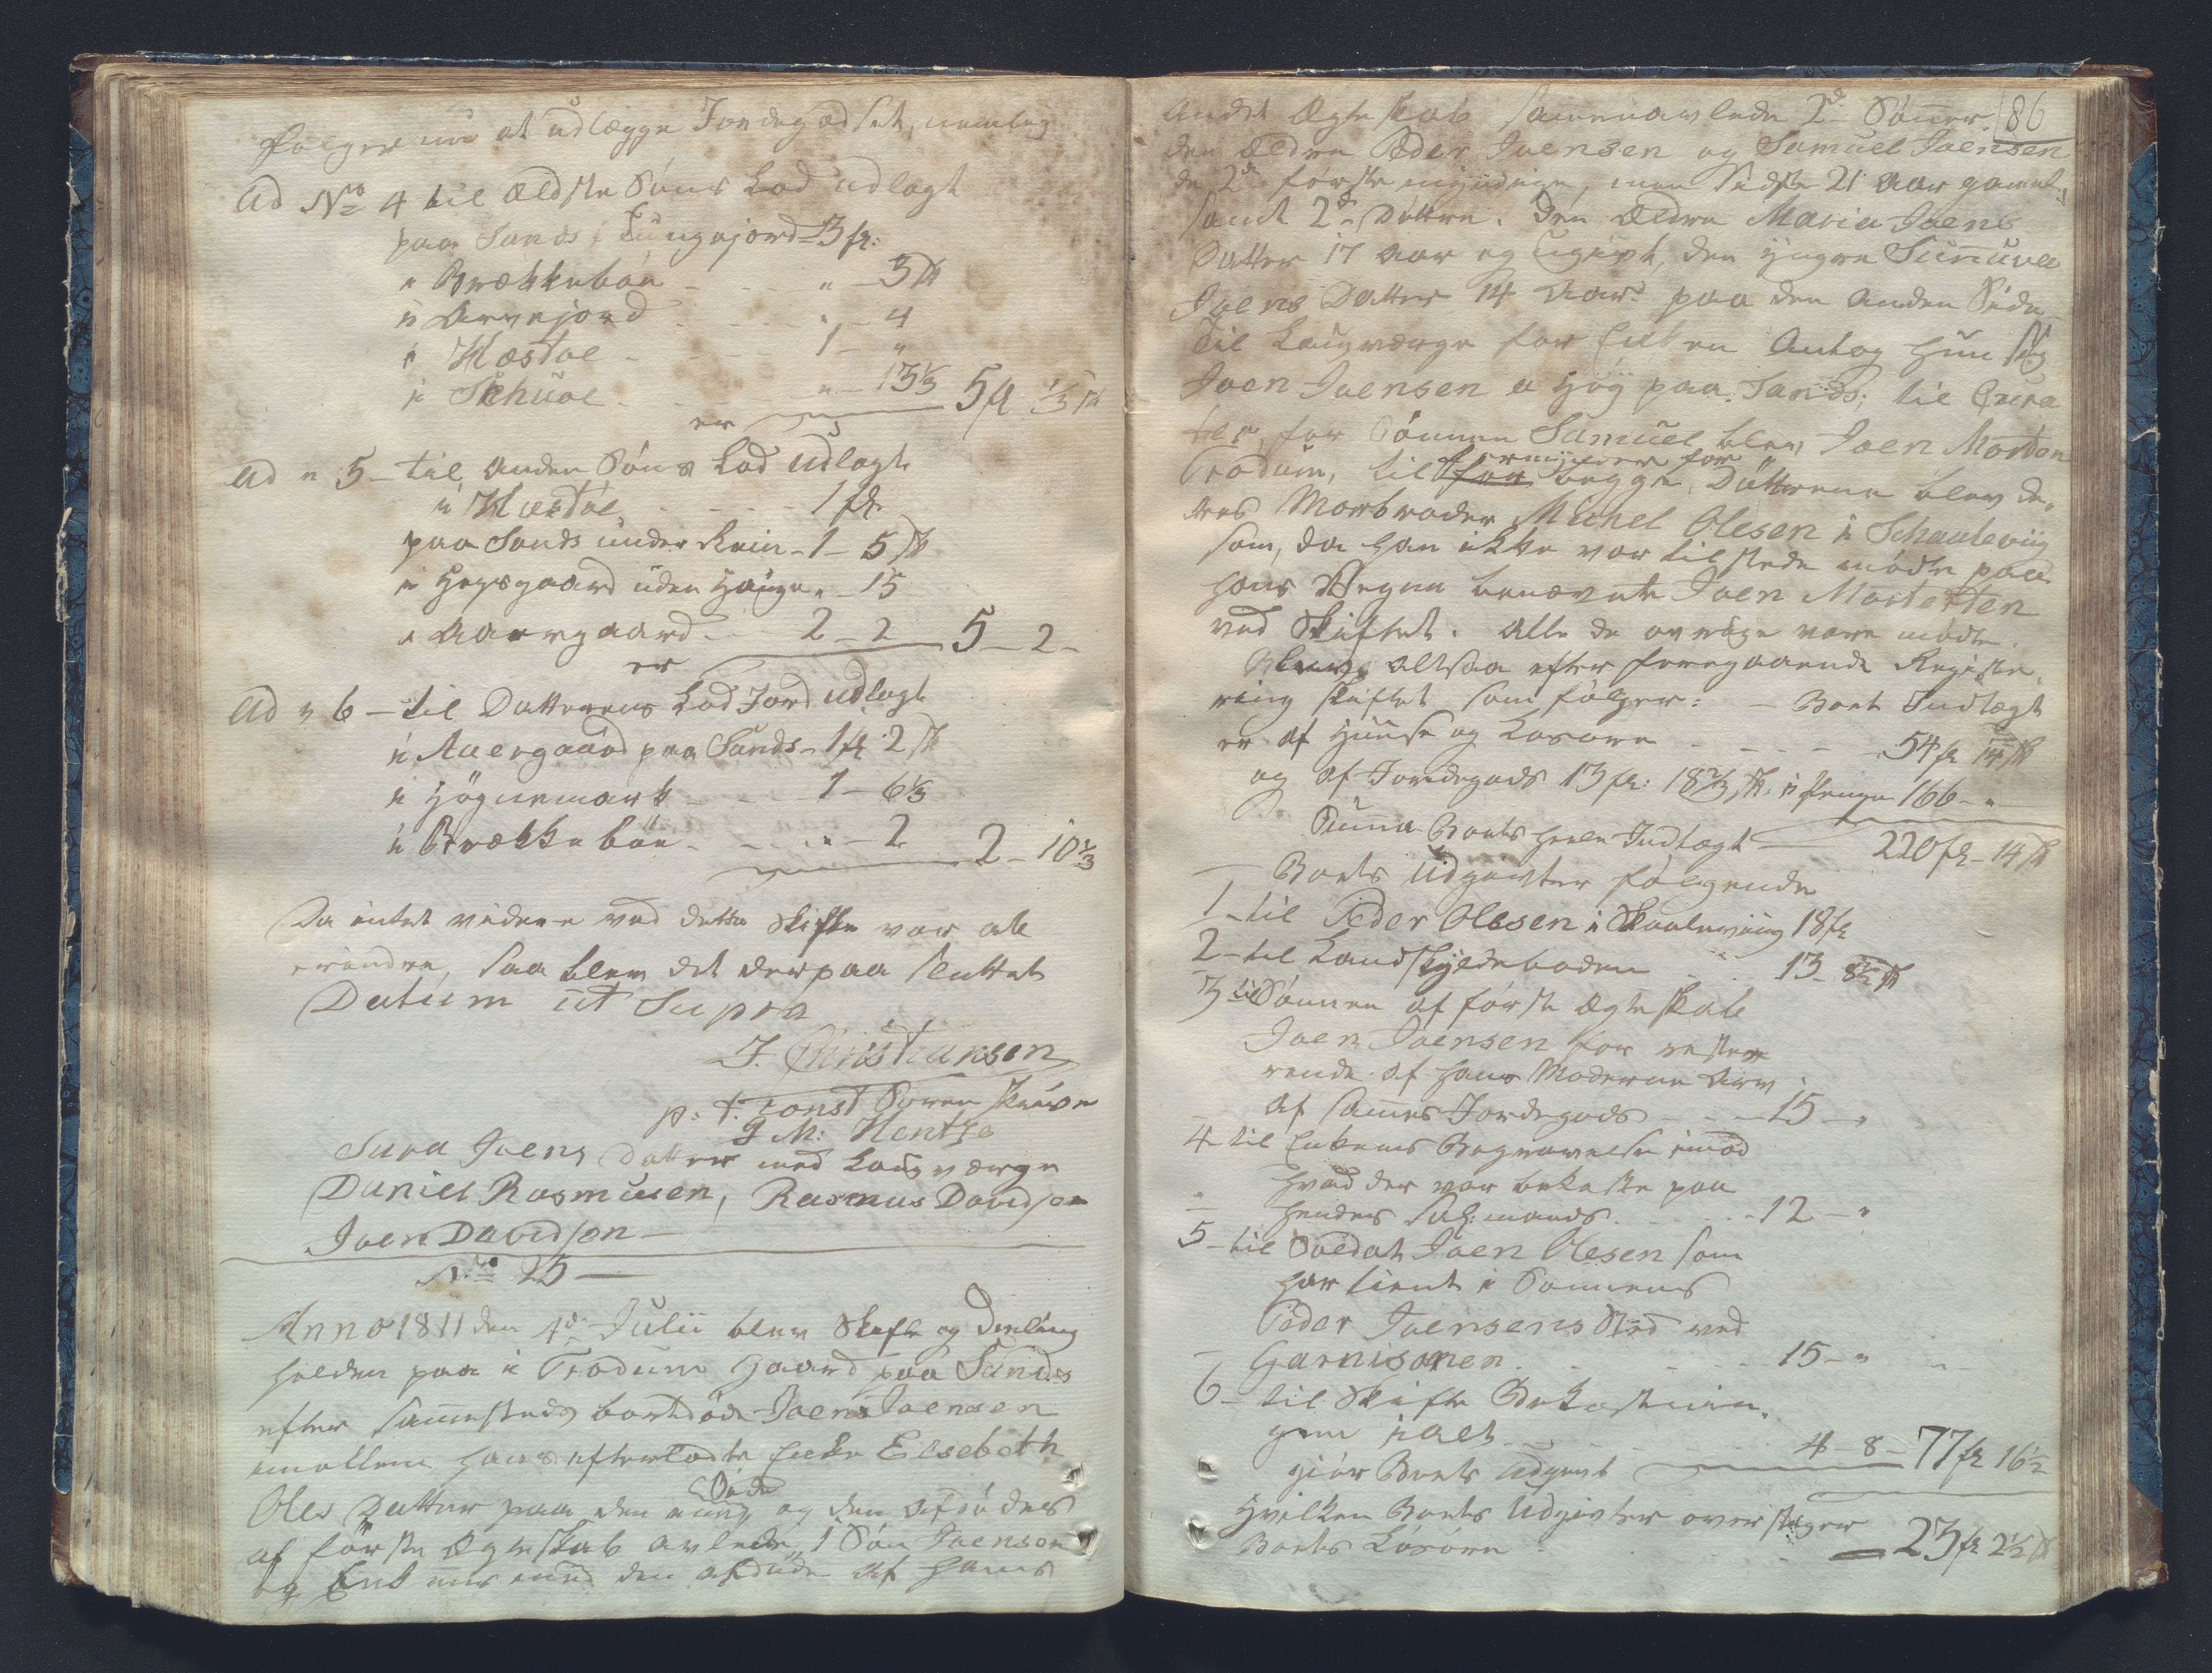 følger nu at udlægge Jordegodset, nemlig
Ad No 4 til ældste Søns Lod udlagt
paa Sands i Tungajord 3 fl:
" Brekkubøn - - " - 3 sk
i Arvejord - - - " - 4
i Hæstoe - - 1 - "
i Skhuoe - - " - 13⅓
er 5 fl ⅓ sk
Ad " 5 - til anden Søns Lod udlagt
i Hæstoe - - - 1 fl.
paa Sands under Rein - 1 - 5 sk
i Hegsgaard uden Hauge " - 15
i Aaergaard - - 2 - 2
er 5 - 2 -
Ad " 6 - til Datterens Lod Jord udlagt
i Aaergaard paa Sands - 1 fl 2 sk
i Høgnemark - - - 1 - 6⅓
i Brekkubøn - - - " - 2
2 - 10⅓
Da intet videre ved dette Skifte var at
erindre, saa blev det derpaa sluttet
Datum ut Supra
J. Christiansen
p: t. Const Sorenskriver
J M: Hentze
Sura Joens Datter med Laugværge
Daniel Rasmusen, Rasmus Davidsen
Joen Davidsen -
No 25 -
Anno 1811 den 4de Julii blev Skifte og Deeling
holden paa i Trodum Gaard paa Sands
efter sammesteds bortdøde Joen Joensen
imellem hans efterladte Enke Elsebeth
Oles Datter paa den eene Side og den afdødes
af første Ægteskab avlede 1 Søn Joensen
og Enk med den afdøde af hans
86
andet Ægteskab sammenavlede 2de Sønner.
den ældre Peder Joensen og Samuel Joensen
de 2de første myndige, men sidste 21 Aar gamel,
samt 2de Døttre. Den ældre Maria Joens
Datter 17 Aar og ugivt, den yngre Sunnuva
Joens Datter 14 Aar paa den anden Side
Til Laugværge for Enken antog hun sig
Joen Joensen a Høÿ paa Sands; til Cura
tor, for Sønnen Samuel blev Joen Morten
Trodum, til formynder for begge Døttrene blev de,
res Morbroder Michel Olesen i Schaaleviig
som, da han ikke var tilstede mødte paa
hans Vegne benævnte Joen Mortensen
ved Skiftet. Alle de øvrige vare mødte
Blev altsaa efter foregaaende Registe,
ring skiftet som følger: - Boets Indtægt
er af Huuse og Løsøre - - - - 54 fl 14 sk
og af Jordegods 13 fl: 18⅔ sk. i Penge 166 - "
Suma Boets heele Indtægt - 220 fl - 14 sk
Boets Udgivter følgende
1 - til Peder Olesen i Skaaleviig 18 fl
2 - til Landskyldsboden - - 13 - 8½ sk
3 til Sønnen af første Ægteskab
Joen Joensen for rester
rende af hans Moderne Arv
af sammes Jordegods - - - 15 - "
4 - til Enkens Begravelse imod
hvad der var bekostet paa
hendes Sal: Mands - - - - 12 - "
5 - til Soldat Joen Olesen som
har tient i Sønnens
Peder Joensens Sted ved
Garnisonen - - - - 15 - "
6 - til Skifte Bekostnin,
gen ialt - - - - - 4 - 8 -
giør Boets Udgivt 77 fl 16½
Hvilken Boets Udgivter overstiger
Boets Løsøre - - - 23 fl 2½ sk